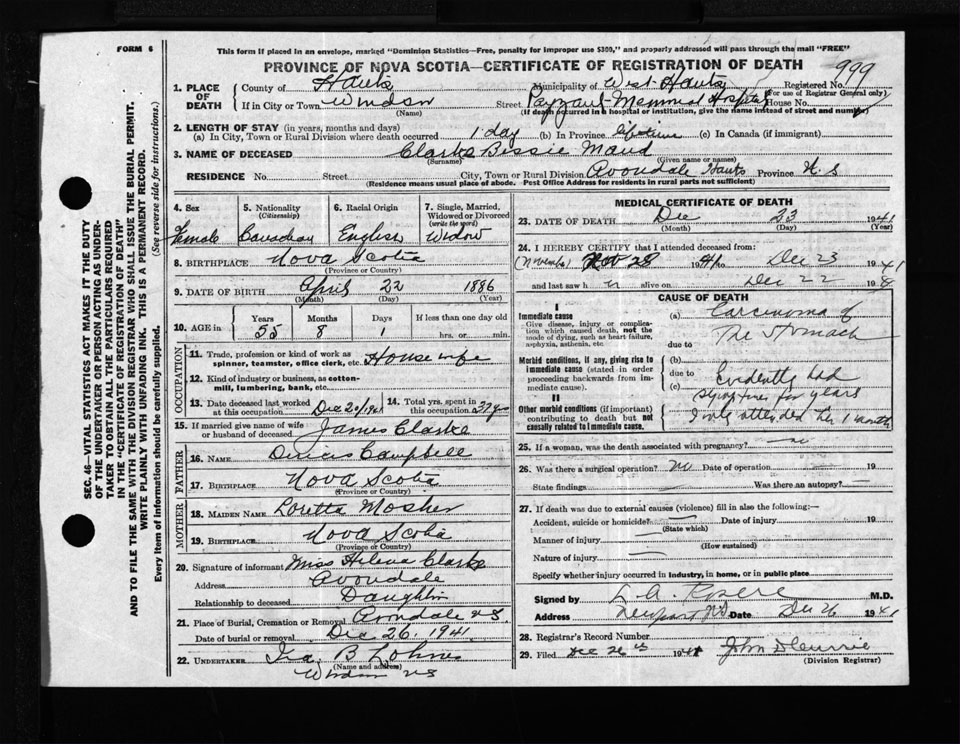 FORM 6
This form if placed in an envelope, marked "Dominion Statistics—Free, penalty for improper use $300," and properly addressed will pass through the mail "FREE"
PROVINCE OF NOVA SCOTIA—CERTIFICATE OF REGISTRATION OF DEATH
999
1. PLACE OF DEATH
County of Hants Municipality of West Hants Registered No.
(For use of Registrar General only)
If in City or Town Windsor Street Payzant Memorial Hospital House No.
(Name) (If death occurred in a hospital or institution, give the name instead of street and number)
2. LENGTH OF STAY (in years, months and days)
(a) In City, Town or Rural Division where death occurred 1 day (b) In Province lifetime (c) In Canada (if immigrant)
3. NAME OF DECEASED Clarke Bessie Maud
(Surname) (Given name or names)
RESIDENCE No. Street City, Town or Rural Division Avondale Hants Province N.S
(Residence means usual place of abode. Post Office Address for residents in rural parts not sufficient)
4. Sex 5. Nationality (Citizenship) 6. Racial Origin 7. Single, Married, Widowed or Divorced (write the word)
Female Canadian English Widow
8. BIRTHPLACE Nova Scotia
(Province or Country)
9. DATE OF BIRTH April 22 1886
(Month) (Day) (Year)
10. AGE in Years Months Days If less than one day old
55 8 1 hrs. or min.
OCCUPATION
11. Trade, profession or kind of work as spinner, teamster, office clerk, etc. House wife
12. Kind of industry or business, as cotton-mill, lumbering, bank, etc.
13. Date deceased last worked at this occupation Dec 20/1941 14. Total yrs. spent in this occupation 27 yrs
15. If married give name of wife or husband of deceased James Clarke
FATHER
16. NAME Campbell
17. BIRTHPLACE Nova Scotia
(Province or Country)
MOTHER
18. MAIDEN NAME Loretta Mosher
19. BIRTHPLACE Nova Scotia
(Province or Country)
20. Signature of informant Miss Helena Clarke
Address Avondale
Relationship to deceased Daughter
21. Place of Burial, Cremation or Removal Avondale NS.
Date of burial or removal Dec 26. 1941
22. UNDERTAKER Ira B Lohnes
(Name and address)
Windsor NS
MEDICAL CERTIFICATE OF DEATH
23. DATE OF DEATH Dec 23 1941
(Month) (Day) (Year)
24. I HEREBY CERTIFY that I attended deceased from:
(November) Nov 28 1941 to Dec 23 1941
and last saw h alive on Dec 22 19
CAUSE OF DEATH
I
Immediate cause
Give disease, injury or complication which caused death, not the mode of dying, such as heart failure, asphyxia, asthenia, etc.
(a) Carcinoma of
The Stomach
due to
Morbid conditions, if any, giving rise to immediate cause (stated in order proceeding backwards from immediate cause).
(b)
due to
(c)
Evidently had
symptoms for years
I only attended her 1 month
II
Other morbid conditions (if important) contributing to death but not causally related to immediate cause.
25. If a woman, was the death associated with pregnancy? no
26. Was there a surgical operation? no Date of operation 19
State findings Was there an autopsy?
27. If death was due to external causes (violence) fill in also the following:—
Accident, suicide or homicide? Date of injury 19
(State which)
Manner of injury
(How sustained)
Nature of injury
Specify whether injury occurred in industry, in home, or in public place
Signed by M.D.
Address Newport N.S Date Dec 26 1941
28. Registrar's Record Number
29. Filed Dec 26th 1941
(Division Registrar)
SEC. 46—VITAL STATISTICS ACT MAKES IT THE DUTY
OF THE UNDERTAKER OR PERSON ACTING AS UNDER-
TAKER TO OBTAIN ALL THE PARTICULARS REQUIRED
IN THE "CERTIFICATE OF REGISTRATION OF DEATH"
AND TO FILE THE SAME WITH THE DIVISION REGISTRAR WHO SHALL ISSUE THE BURIAL PERMIT.
WRITE PLAINLY WITH UNFADING INK. THIS IS A PERMANENT RECORD.
Every item of information should be carefully supplied. (See reverse side for instructions.)